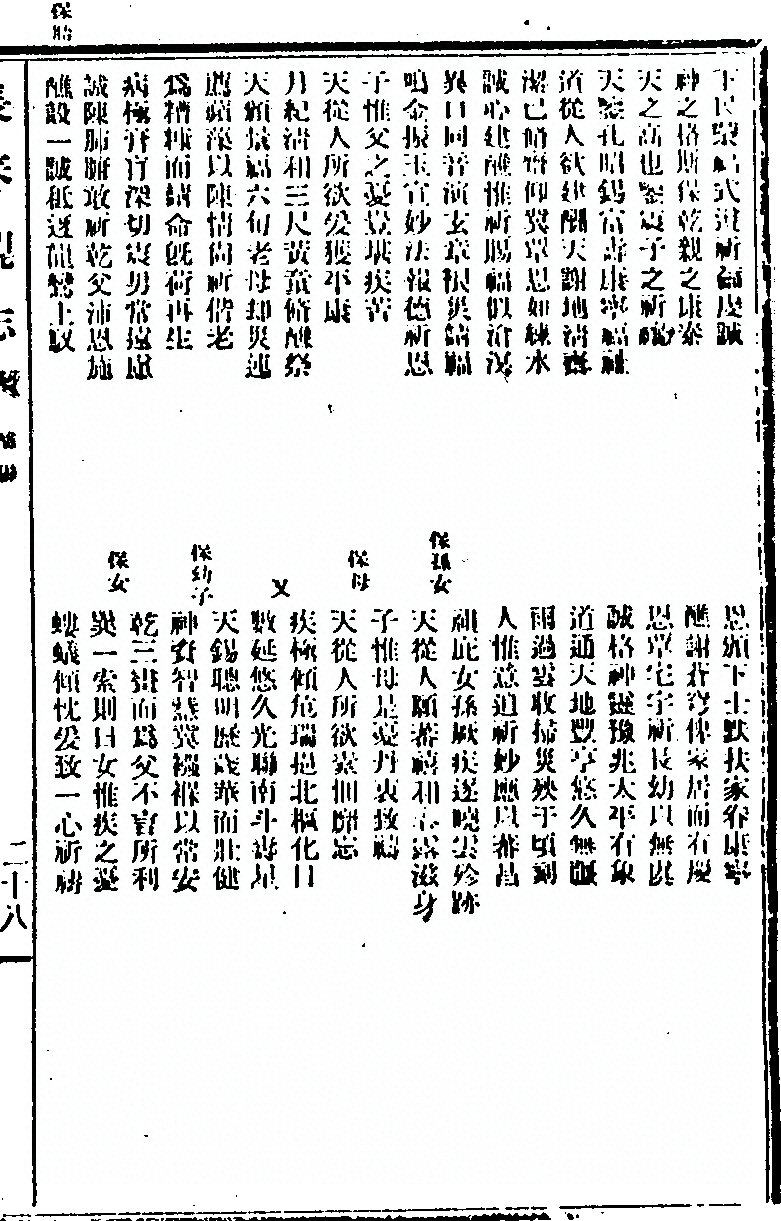 下民蒙福式遵祈福虔誠
恩頒下士默扶家眷康寧
神之格斯保乾親之康泰
醮謝蒼穹俾家居而有慶
天之高也鑒哀子之祈禱
恩覃宅宇祈長幼以無虞
天鑒孔昭錫富壽康寧福祉
誠格神靈豫兆太平有象
道從人欲建醮天謝地清齋
道通天地豐亨悠久無疆
潔己脩齋仰冀覃恩如練水
雨過雲收掃災殃于頃刻
誠心建醮惟祈賜福似沿
人惟意道祈妙應以蕃昌
異口同音演玄章禳災錫福
保孫女
祖庇女孫厥疾遂曉雲殄跡
鳴金振玉宣妙法報德祈恩
天從人願蕃禧和春露滋身
子惟父之憂豈堪疾苦
保母
子惟母是憂丹衷救禱
天從人所欲爰獲平康
天從人所欲嘉
月紀清和三尺黃童脩醮祭
又
疾極傾危瑞挹北樞化日
天頒景福六旬老母却災迍
數延悠久光聯南斗壽星
薦蘋藻以陳情尚祈偕老
保幼子
天錫聰明歷歲華而壯健
為糟糠而請命既荷再生
神資智慧冀襁褓以常安
病極膏肓深切哀男當遠慮
保女
乾三畫而為父不言所利
誠陳肺腑敢祈乾父沛恩施
巽一索則曰女惟疾之憂
保胎
醮設一誠祇迓龍鸞上馭
螻蟻傾忱爰致一心祈禱
二十八